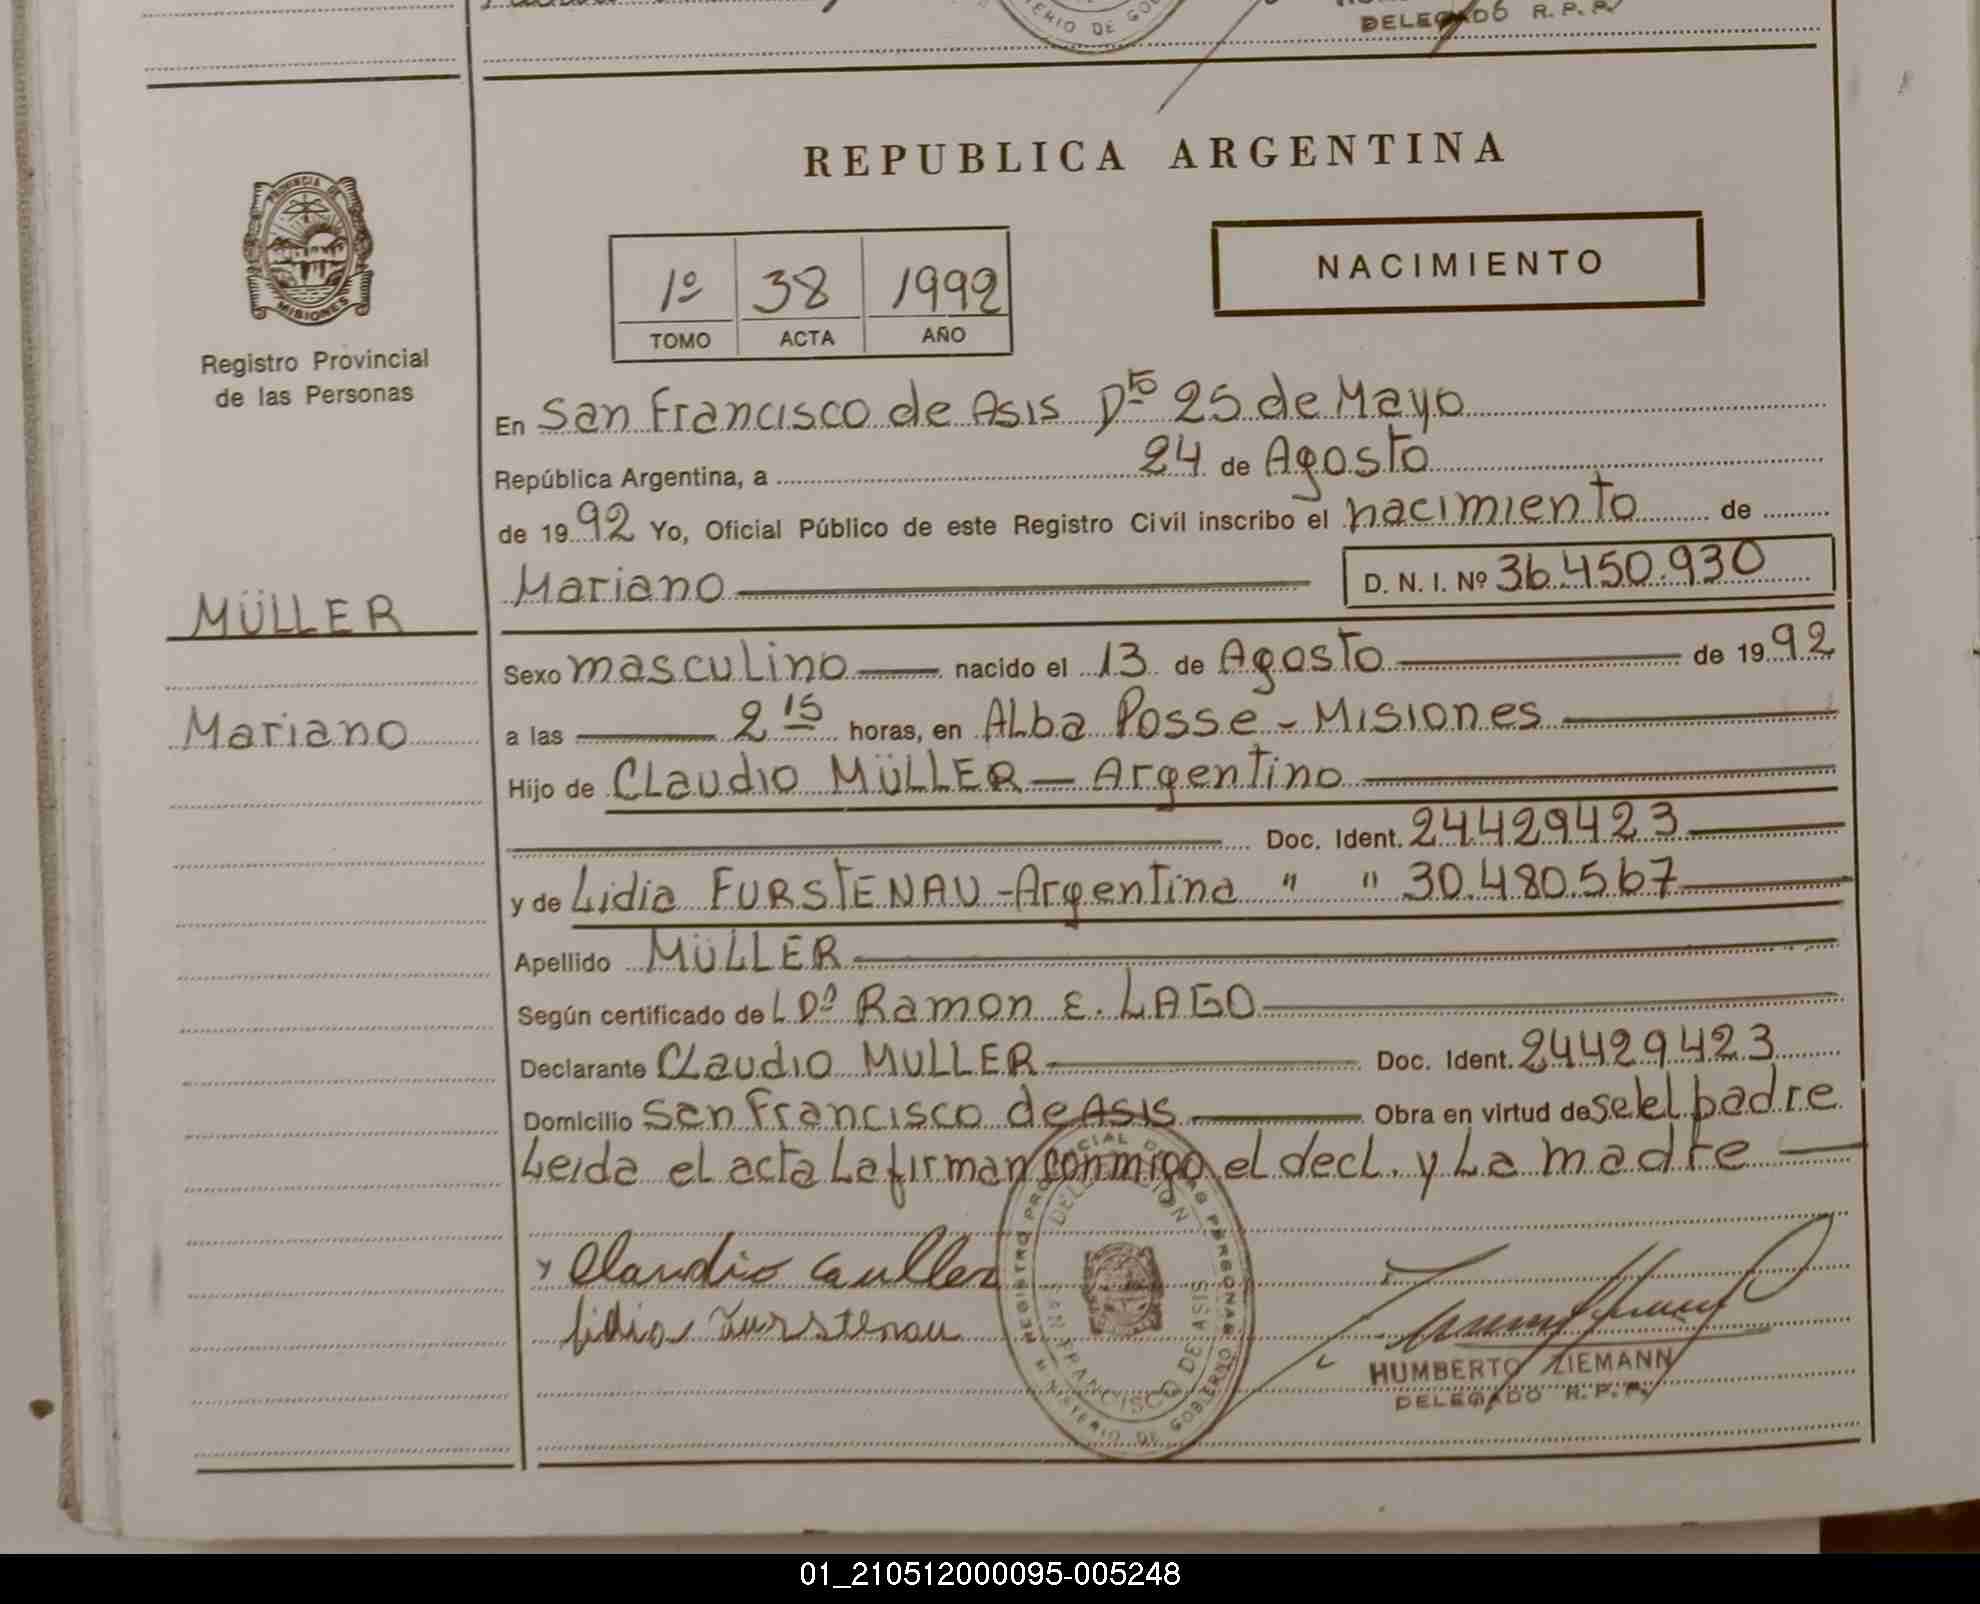 DELEGADO R.P.P.
REPUBLICA ARGENTINA
PROVINCIA DE MISIONES
Registro Provincial
de las Personas
1º 38 1992
TOMO ACTA AÑO
NACIMIENTO
En San Francisco de Asis Dto 25 de Mayo
República Argentina, a 24 de Agosto
de 1992 Yo, Oficial Público de este Registro Civil inscribo el nacimiento de
Mariano D. N. I. Nº 36.450.930
MÜLLER
Mariano
Sexo masculino nacido el 13 de Agosto de 1992
a las 2 15 horas, en Alba Posse - Misiones
Hijo de Claudio MÜLLER - Argentino
Doc. Ident. 24429423
y de Lidia FURSTENAU - Argentina " " 30.480.567
Apellido MÜLLER
Según certificado de L Dº Ramon E. LAGO
Declarante Claudio MULLER Doc. Ident. 24429423
Domicilio San Francisco de Asis Obra en virtud de sel el padre
Leida el acta La firman conmigo el decl. y La madre
REGISTRO PROVINCIAL DE LAS PERSONAS
DELEGACION
SAN FRANCISCO DE ASIS
MINISTERIO DE GOBIERNO
Claudio Muller
Lidia Furstenau
HUMBERTO ZIEMANN
DELEGADO R.P.P.
01_210512000095-005248